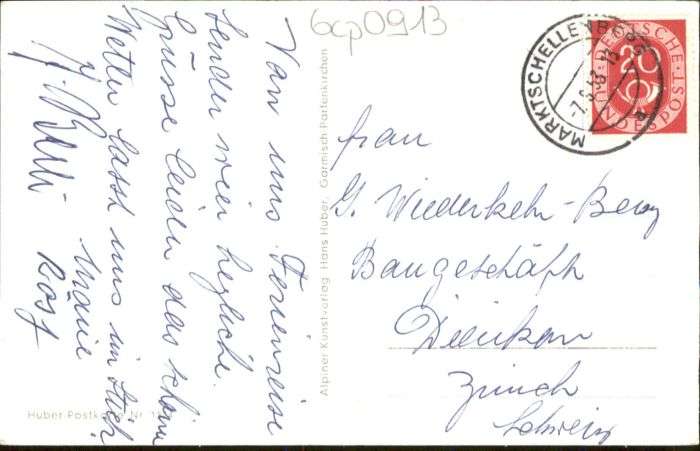 6cp0913
Von uns. Ferienreise
senden wir herzliche
Grüsse leider das schöne
Wetter lasst uns im Stich
Rosf
Alpiner Kunstverlag Hans Huber, Garmisch-Partenkirchen
Huber-Postkarte Nr. 1
MARKTSCHELLENBERG
DEUTSCHE
20
BUNDESPOST
Frau
G. Wiederkehr-Berg
Baugeschäft
Zürich
Schweiz